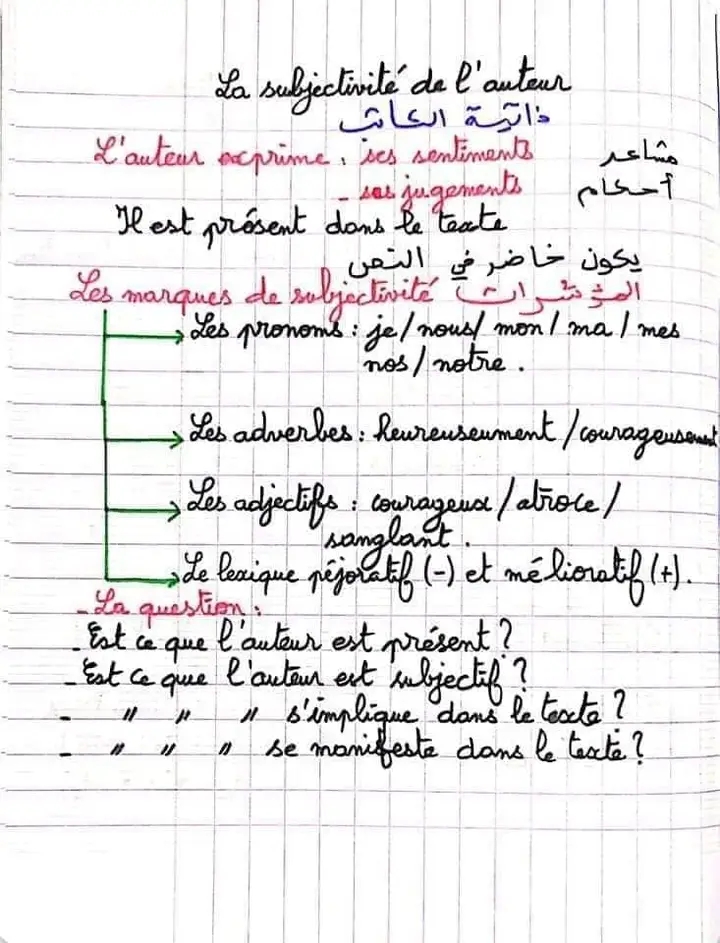 La subjectivité de l'auteur
ذاتية الكاتب
L'auteur exprime : ses sentiments مشاعر
- ses jugements أحكام
Il est présent dans le texte
يكون خاضر في النص
Les marques de subjectivité المؤشرات
Les pronoms : je / nous / mon / ma / mes
nos / notre .
Les adverbes : heureuseument / courageusement
Les adjectifs : courageux / atroce /
sanglant .
Le lexique péjoratif (-) et mélioratif (+).
- La question :
- Est ce que l'auteur est présent ?
- Est ce que l'auteur est subjectif ?
- " " " s'implique dans le texte ?
- " " " se manifeste dans le texte ?